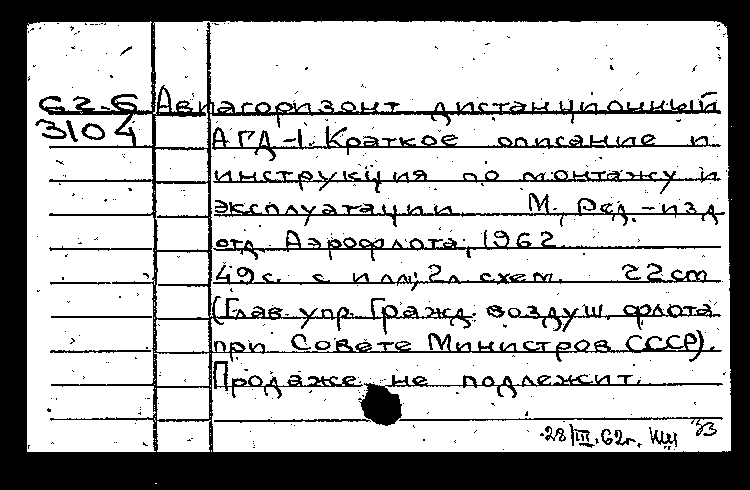 62-6 Авиагоризонт дистанционный
3104 АГД-1. Краткое описание и
инструкция по монтажу и
эксплуатации М., Ред.-изд.
отд. Аэрофлота, 1962.
49 с. с илл; 2л схем. 22 cm
(Глав. упр. Гражд. воздуш. флота
при Совете Министров СССР).
Продаже не подлежит.
28/III.62г. 33